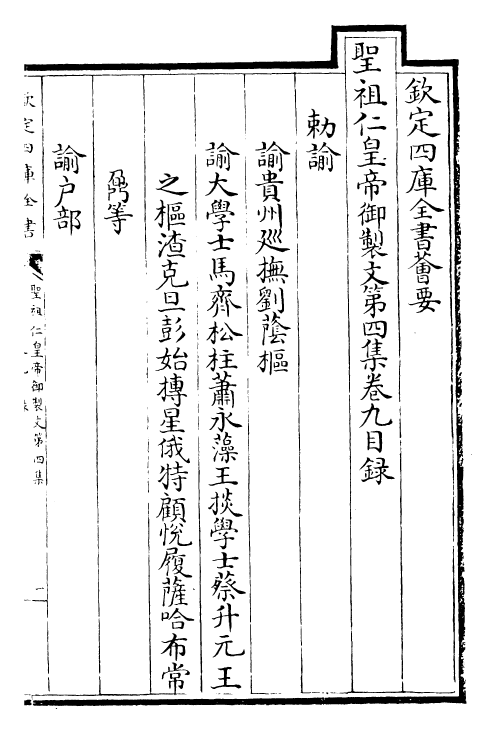 欽定四庫全書薈要
聖祖仁皇帝御製文第四集卷九目録
勅諭
諭貴州廵撫劉蔭樞
諭大學士馬齊松柱蕭永藻王掞學士蔡升元王
之樞渣克旦彭始摶星俄特顧悅履薩哈布常
鼐等
諭户部
欽定四庫全書
聖祖仁皇帝御製文第四集
一